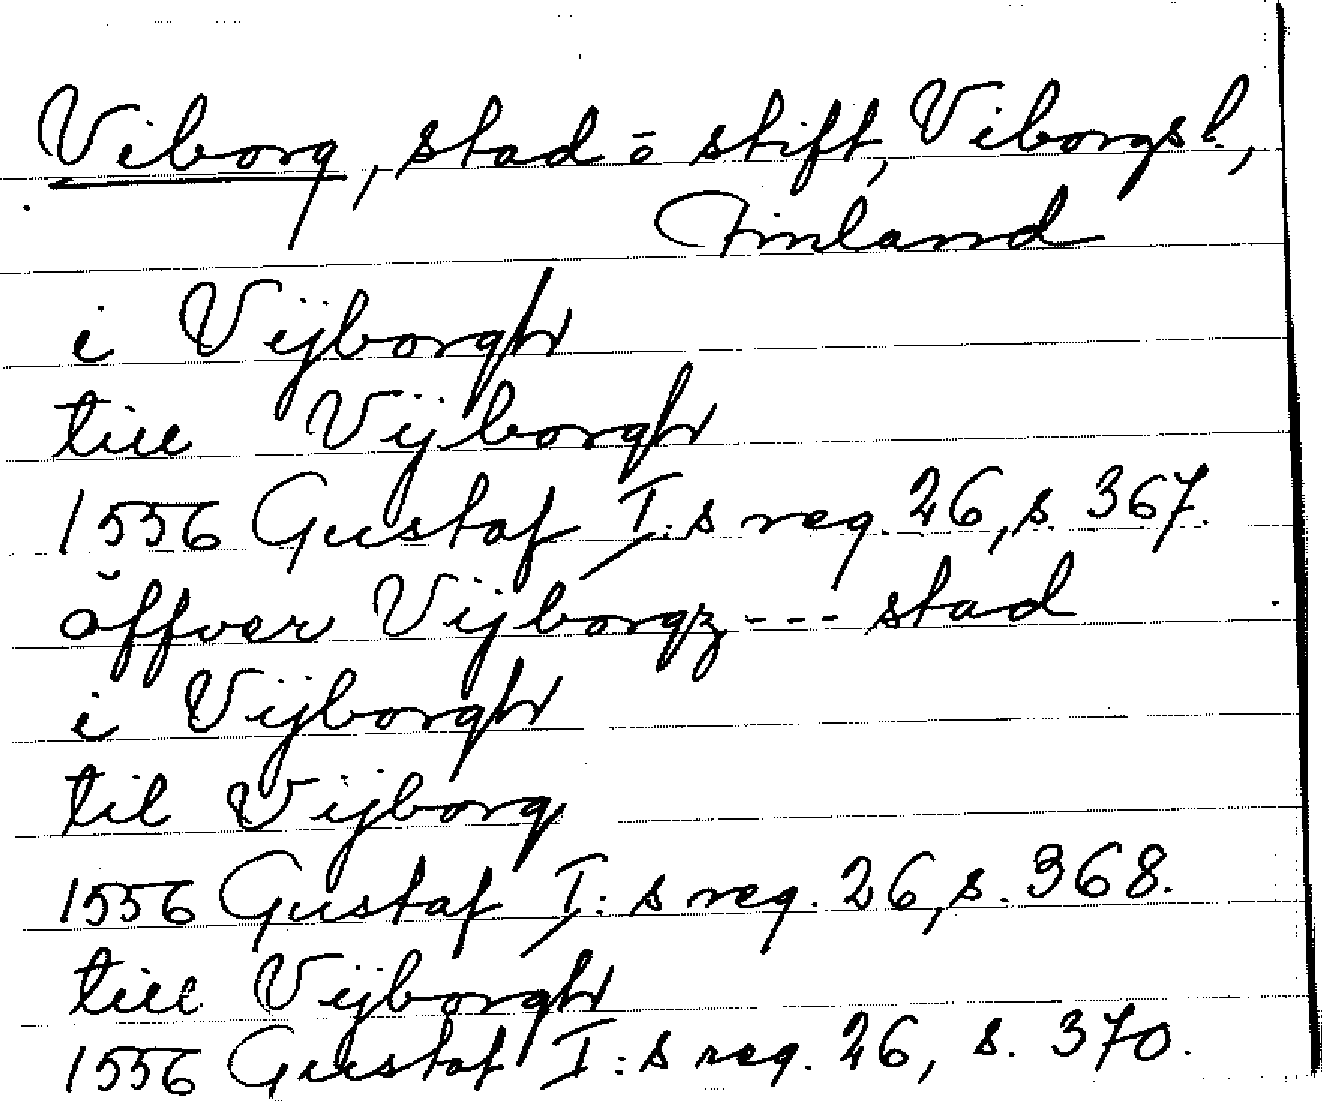 Viborg, stad o stift, Viborgs l.,
Finland
i Vijborgh
till Vijborgh
1556 Gustaf I:s reg. 26, s. 367.
öffver Vijborgz --- stad
i Vijborgh
til Vijborg
1556 Gustaf I:s reg. 26, s. 368.
till Vijborgh
1556 Gustaf I:s reg. 26, s. 370.